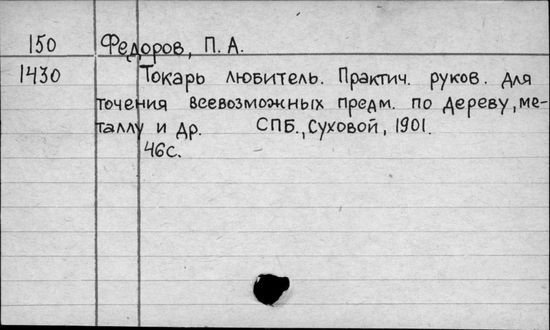 150 Федоров, П. А.
1430 Токарь любитель. Практич. руков. для
точения всевозможных предм. по дереву, ме-
таллу и др. СПБ., Суховой, 1901.
46с.